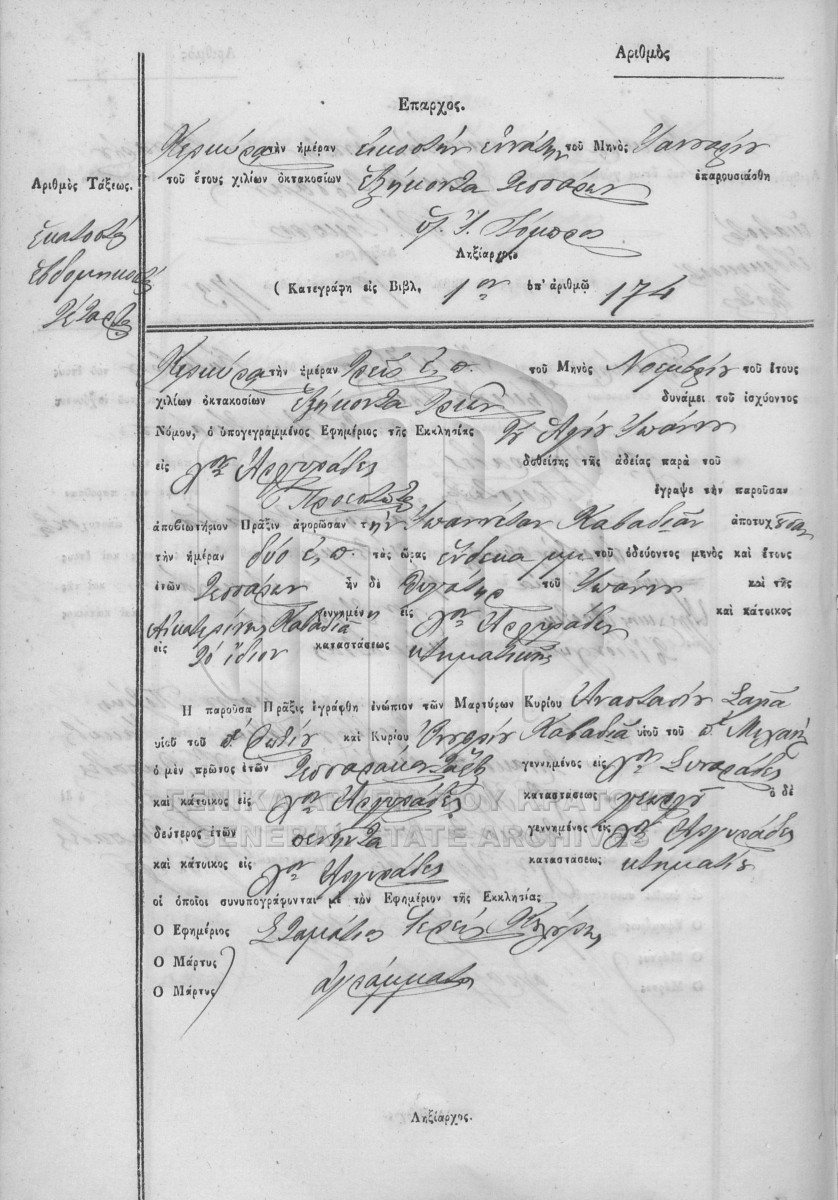 Αριθμὸς
Επαρχος.
Κερκύρα τὴν ἡμέραν εἰκοστὴν ἐννάτην τοῦ Μηνὸς Ἰανουαρίου
τοῦ ἔτους χιλίων ὀκτακοσίων ἑξήκοντα τεσσάρων ἐπαρουσιάσθη
Αριθμὸς Τάξεως.
Ἑκατοστὴ
ἑβδομηκοστὴ
τετάρτη
Ληξίαρχος
( Κατεγράφη εἰς Βιβλ. 1ον ὑπ' ἀριθμῷ 174
Κερκύρα τὴν ἡμέραν τρεῖς ἑ. π. τοῦ Μηνὸς Νοεμβρίου τοῦ ἔτους
χιλίων ὀκτακοσίων ἑξήκοντα τριῶν δυνάμει τοῦ ἰσχύοντος
Νόμου, ὁ ὑπογεγραμμένος Εφημέριος τῆς Εκκλησίας τοῦ Ἁγίου Ἰωάννου
εἰς χον Ἀργυράδες δοθείσης τῆς ἀδείας παρὰ τοῦ
Προεστῶτος ἔγραψε τὴν παροῦσαν
ἀποβιωτήριον Πρᾶξιν ἀφορῶσαν τὴν Ἰωαννέταν Καβαδίαν ἀποτυχοῦσαν
τὴν ἡμέραν δύο ἑ. π. τὰς ὥρας ἕνδεκα μμ τοῦ ὁδεύοντος μηνὸς καὶ ἔτους
ἐτῶν τεσσάρων ἦν δὲ θυγάτηρ τοῦ Ἰωάννου καὶ τῆς
Αἰκατερίνης Καβαδία γεννημένη εἰς χον Ἀργυράδες καὶ κάτοικος
εἰς τὸ ἴδιον καταστάσεως κτηματικῆς
Η παροῦσα Πρᾶξις ἐγράφθη ἐνώπιον τῶν Μαρτύρων Κυρίου Ἀναστασίου Σαμα
υἱοῦ τοῦ ποτ Φωτίου καὶ Κυρίου Ὀνουφρίου Καβαδία υἱοῦ τοῦ ποτ Μιχαήλ
ὁ μὲν πρῶτος ἐτῶν τεσσαράκοντα ἕξ γεννημένος εἰς χον Συναράδες
καὶ κάτοικος εἰς χον Ἀργυράδες καταστάσεως γεωργοῦ ὁ δὲ
δεύτερος ἐτῶν πενῆντα γεννημένος εἰς χον Ἀργυράδες
καὶ κάτοικος εἰς χον Ἀργυράδες καταστάσεως κτηματίας
οἱ ὁποῖοι συνυπογράφονται μὲ τὸν Εφημέριον τῆς Εκκλησίας
Ο Εφημέριος Σταμάτιος Ἱερεὺς
Ο Μάρτυς
Ο Μάρτυς ἀγράμματοι
Ληξίαρχος.
ΓΕΝΙΚΑ ΑΡΧΕΙΑ ΤΟΥ ΚΡΑΤΟΥΣ
GENERAL STATE ARCHIVES